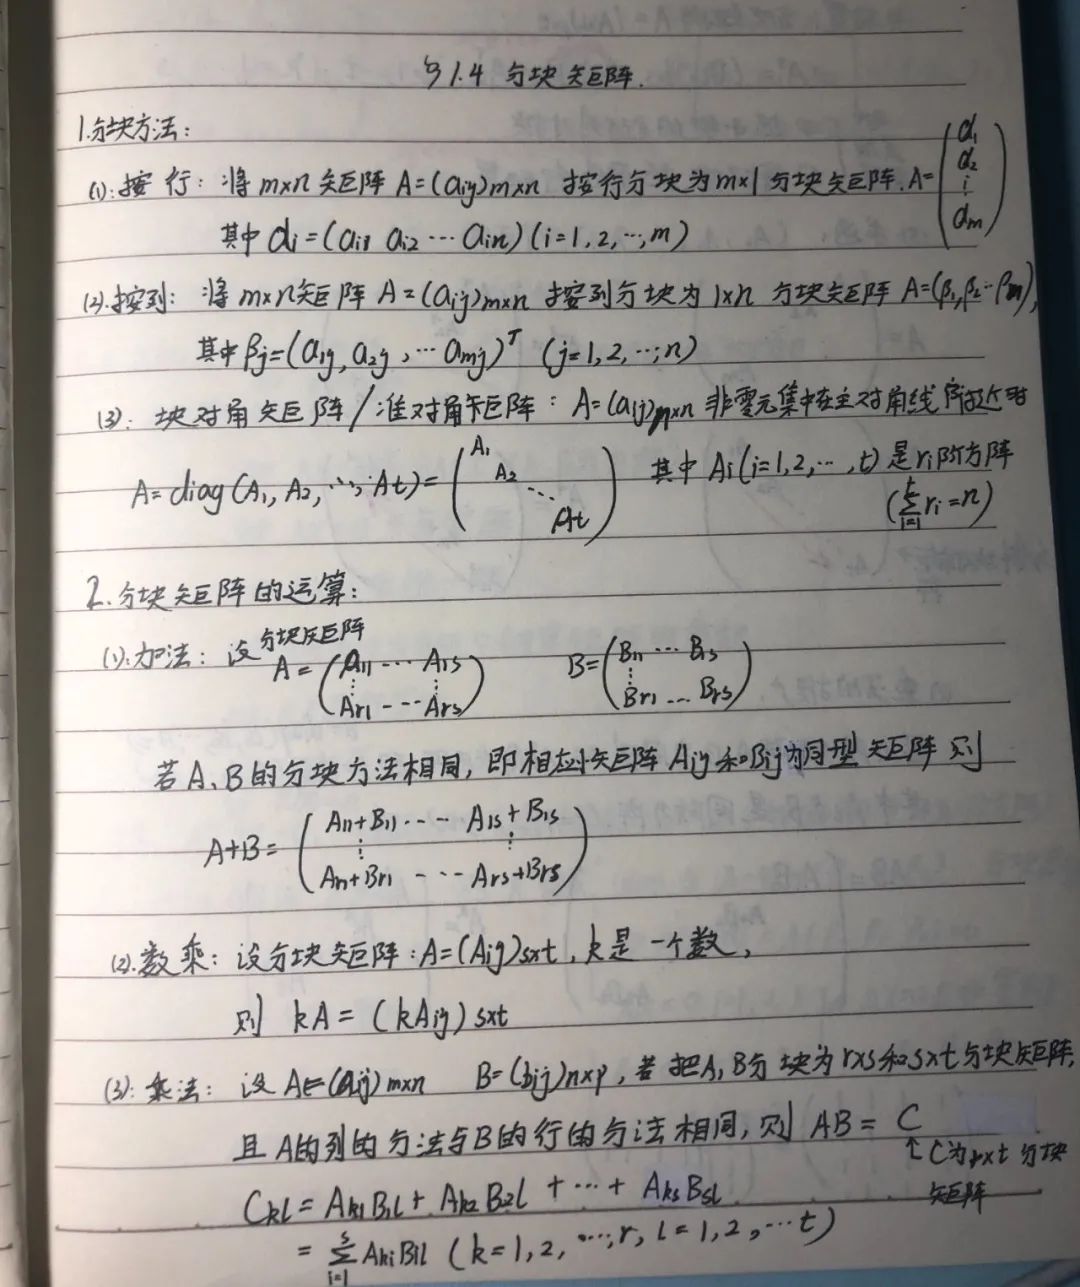 §1.4 分块矩阵.
1.分块方法:
(1):按行: 将m×n矩阵 A=(aij)m×n 按行分块为m×1分块矩阵.A=(α1 α2 ⋮ αm)
其中αi=(ai1 ai2 ⋯ ain)(i=1,2,⋯,m)
(2).按列: 将m×n矩阵 A=(aij)m×n 按列分块为1×n 分块矩阵 A=(β1,β2⋯βn),
其中βj=(a1j,a2j,⋯amj)ᵀ (j=1,2,⋯,n)
(3): 块对角矩阵/准对角矩阵: A=(aij)n×n非零元集中在主对角线附近时
A=diag(A1,A2,⋯,At)=(A1 A2 ⋯ At) 其中Ai(i=1,2,⋯,t)是ri阶方阵
(∑ᵗi=1 ri=n)
2.分块矩阵的运算:
(1):加法: 设分块矩阵
A=(A11 ⋯ A1s ⋮ ⋮ Ar1 ⋯ Ars) B=(B11 ⋯ B1s ⋮ Br1 ⋯ Brs)
若A、B的分块方法相同,即相应小矩阵Aij和Bij为同型矩阵则
A+B=(A11+B11 ⋯ A1s+B1s ⋮ ⋮ Ar1+Br1 ⋯ Ars+Brs)
(2).数乘: 设分块矩阵:A=(Aij)s×t,k是一个数,
则 kA=(kAij)s×t
(3):乘法: 设A=(aij)m×n B=(bij)n×p,若把A,B分块为r×s和s×t分块矩阵,
且A的列的分法与B的行的分法相同,则AB=C
↑C为r×t分块
矩阵
Ckl=Ak1B1l+Ak2B2l+⋯+AksBsl
=∑ˢi=1 AkiBil (k=1,2,⋯,r,l=1,2,⋯t)